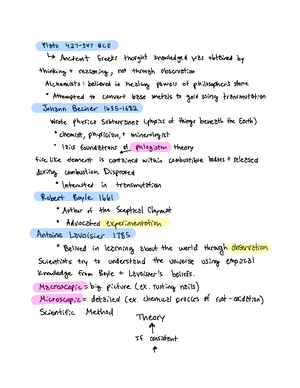 Plato 427-347 BCE
↳ Ancient Greeks thought knowledge was obtained by
thinking + reasoning, not through observation
Alchemists: believed in healing powers of philosopher's stone
• Attempted to convert base metals to gold using transmutation
Johann Becher 1635-1682
Wrote physica subterranea (physics of things beneath the Earth)
• chemist, physician, + minerologist
• laid foundations of phlogiston theory
fire like element is contained within combustible bodies + released
during combustion. Disproved
• Interested in transmutation
Robert Boyle 1661
• Author of the Sceptical Chymist
• Advocated experimentation
Antoine Lavoisier 1785
• Belived in learning about the world through observation
Scientists try to understand the universe using empirical
knowledge from Boyle + Lavoisier's beliefs.
Macroscopic = big picture (ex. rusting nails)
Microscopic = detailed (ex. chemical process of rust - oxidation)
Scientific Method
Theory
↑
If consistent
↑